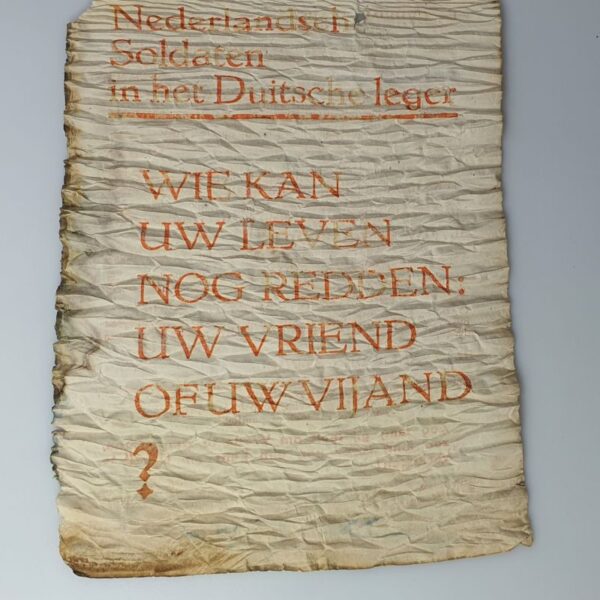 Nederlandsch
Soldaten
in het Duitsche leger
WIE KAN
UW LEVEN
NOG REDDEN:
UW VRIEND
OF UW VIJAND
?